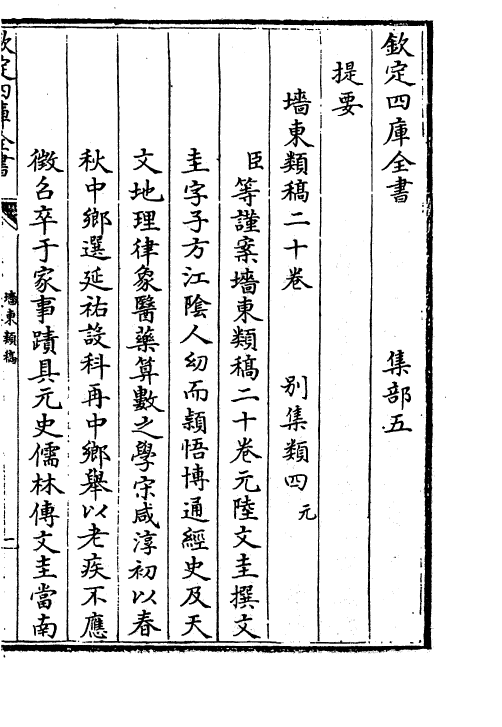 欽定四庫全書 集部五
提要
墻東類稿二十卷 别集類四元
臣等謹案墻東類稿二十卷元陸文圭撰文
圭字子方江陰人幼而頴悟博通經史及天
文地理律象醫藥算數之學宋咸淳初以春
秋中鄉選延祐設科再中鄉舉以老疾不應
徵召卒于家事蹟具元史儒林傳文圭當南
欽定四庫全書
墻東類稿
一